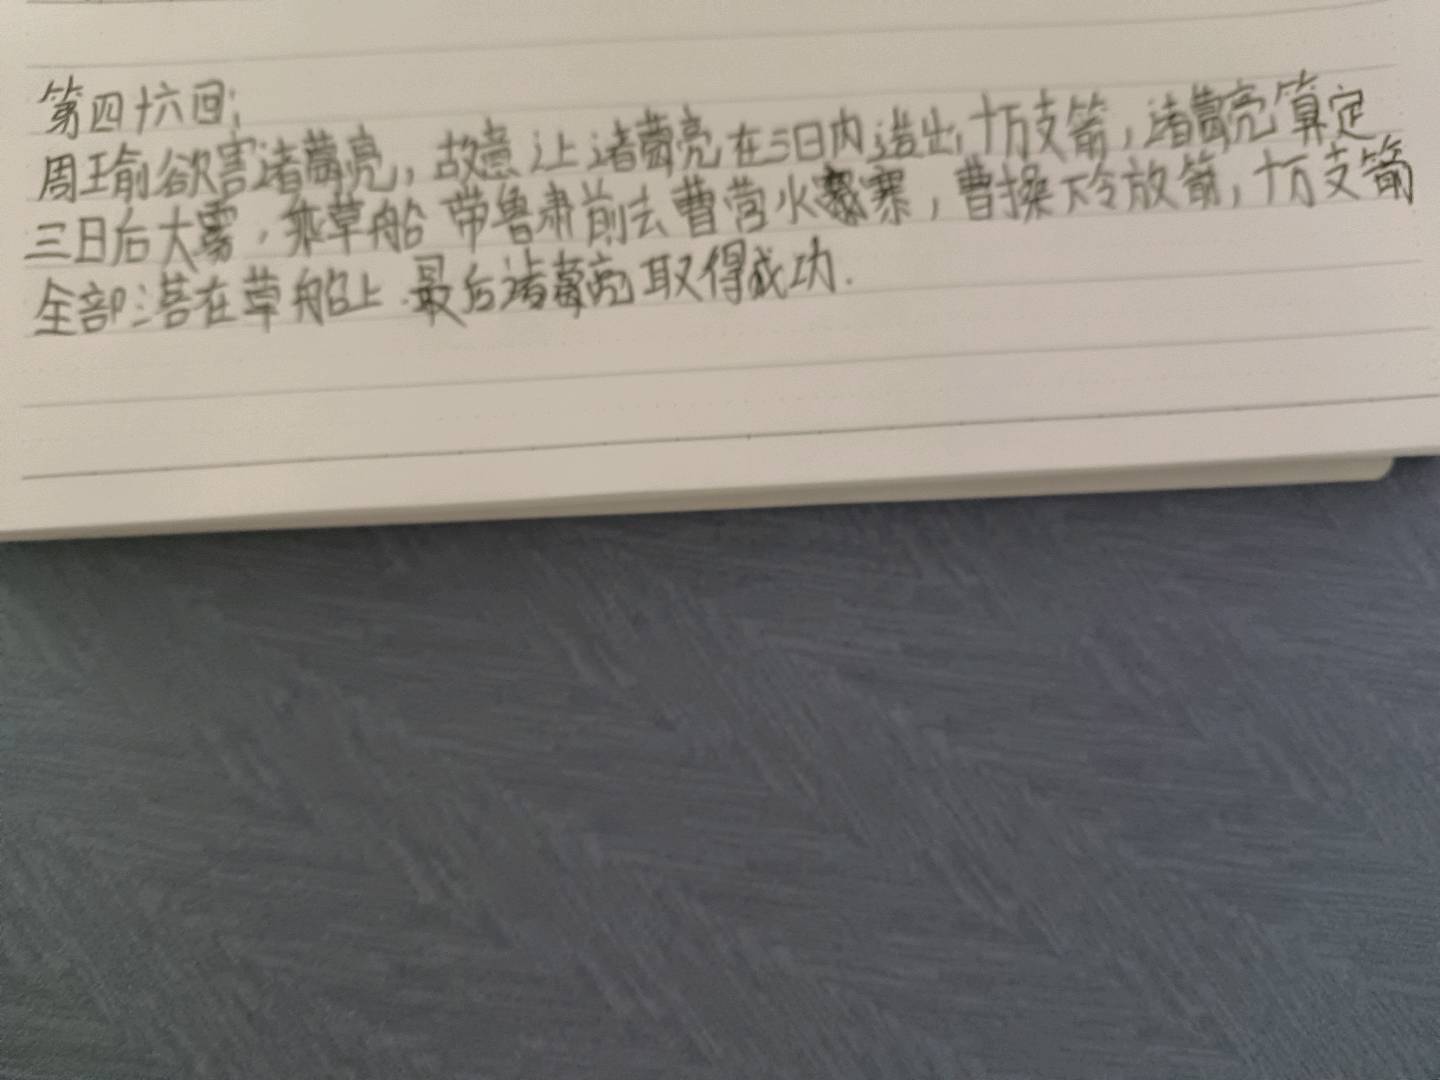 第四十六回:
周瑜欲害诸葛亮,故意让诸葛亮在三日内造出十万支箭,诸葛亮算定
三日后大雾,乘草船带鲁肃前去曹营水寨,曹操下令放箭,十万支箭
全部落在草船上.最后诸葛亮取得成功.